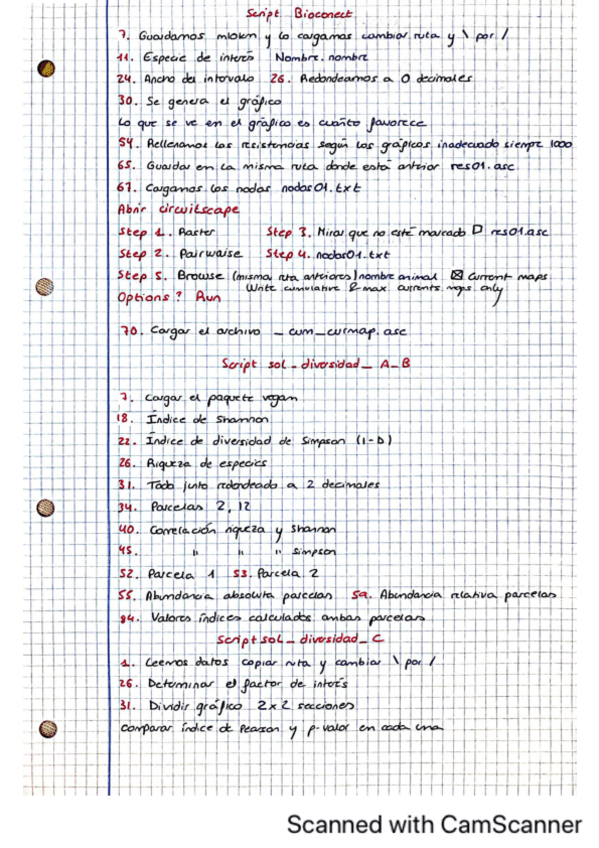 Script Bioconect
7. Guardamos mlown y lo cargamos cambiar ruta y \ por /
11. Especie de interés Nombre.nombre
24. Ancho del intervalo 26. Redondeamos a 0 decimales
30. Se genera el gráfico
Lo que se ve en el gráfico es cuánto favorece
54. Rellenamos las resistencias según los gráficos inadecuado siempre 1000
65. Guardar en la misma ruta donde está anterior res01.asc
67. Cargamos los nodos nodos01.txt
Abrir circuitscape
Step 1. Raster Step 3. Mirar que no esté marcado ☐ res01.asc
Step 2. Pairwaise Step 4. nodos01.txt
Step 5. Browse (misma ruta anteriores) nombre animal ☒ Current maps
Options? Run Write cumulative & max currents maps only
70. Cargar el archivo _cum_curmap.asc
Script sol_diversidad_A_B
7. Cargar el paquete vegan
18. Índice de Shannon
22. Índice de diversidad de Simpson (1-D)
26. Riqueza de especies
31. Todo junto redondeado a 2 decimales
34. Parcelas 2, 12
40. Correlación riqueza y shannon
45. " " " Simpson
52. Parcela 1 53. Parcela 2
55. Abundancia absoluta parcelas 59. Abundancia relativa parcelas
84. Valores índices calculados ambas parcelas
Script sol_diversidad_C
1. Leemos datos copiar ruta y cambiar \ por /
26. Determinar el factor de interés
31. Dividir gráfico 2x2 secciones
Comparar índice de Pearson y p-valor en cada una
Scanned with CamScanner